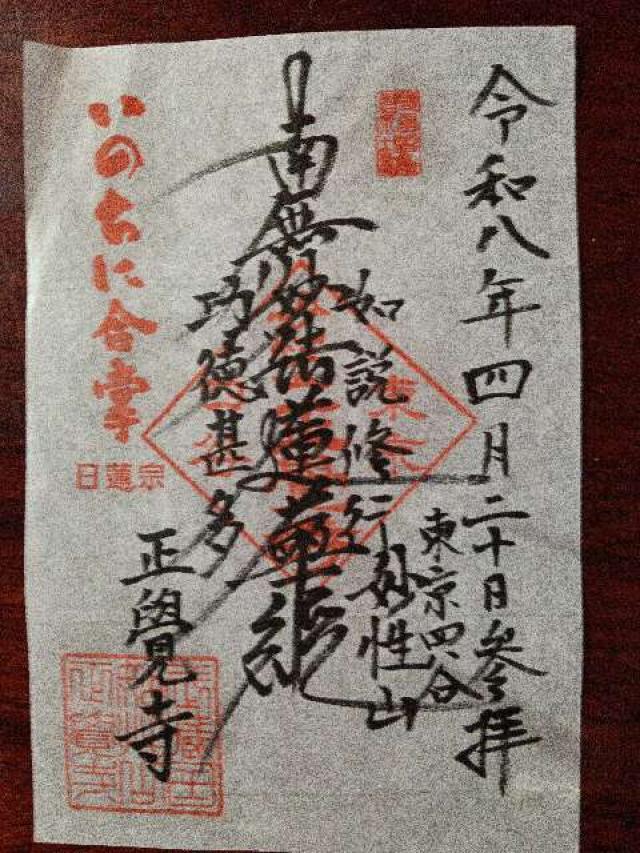 令和八年四月二十日参拝
東京四谷
如説修行
妙性山
南無妙法蓮華経
功徳甚多
正覺寺
いのちに合掌
日蓮宗